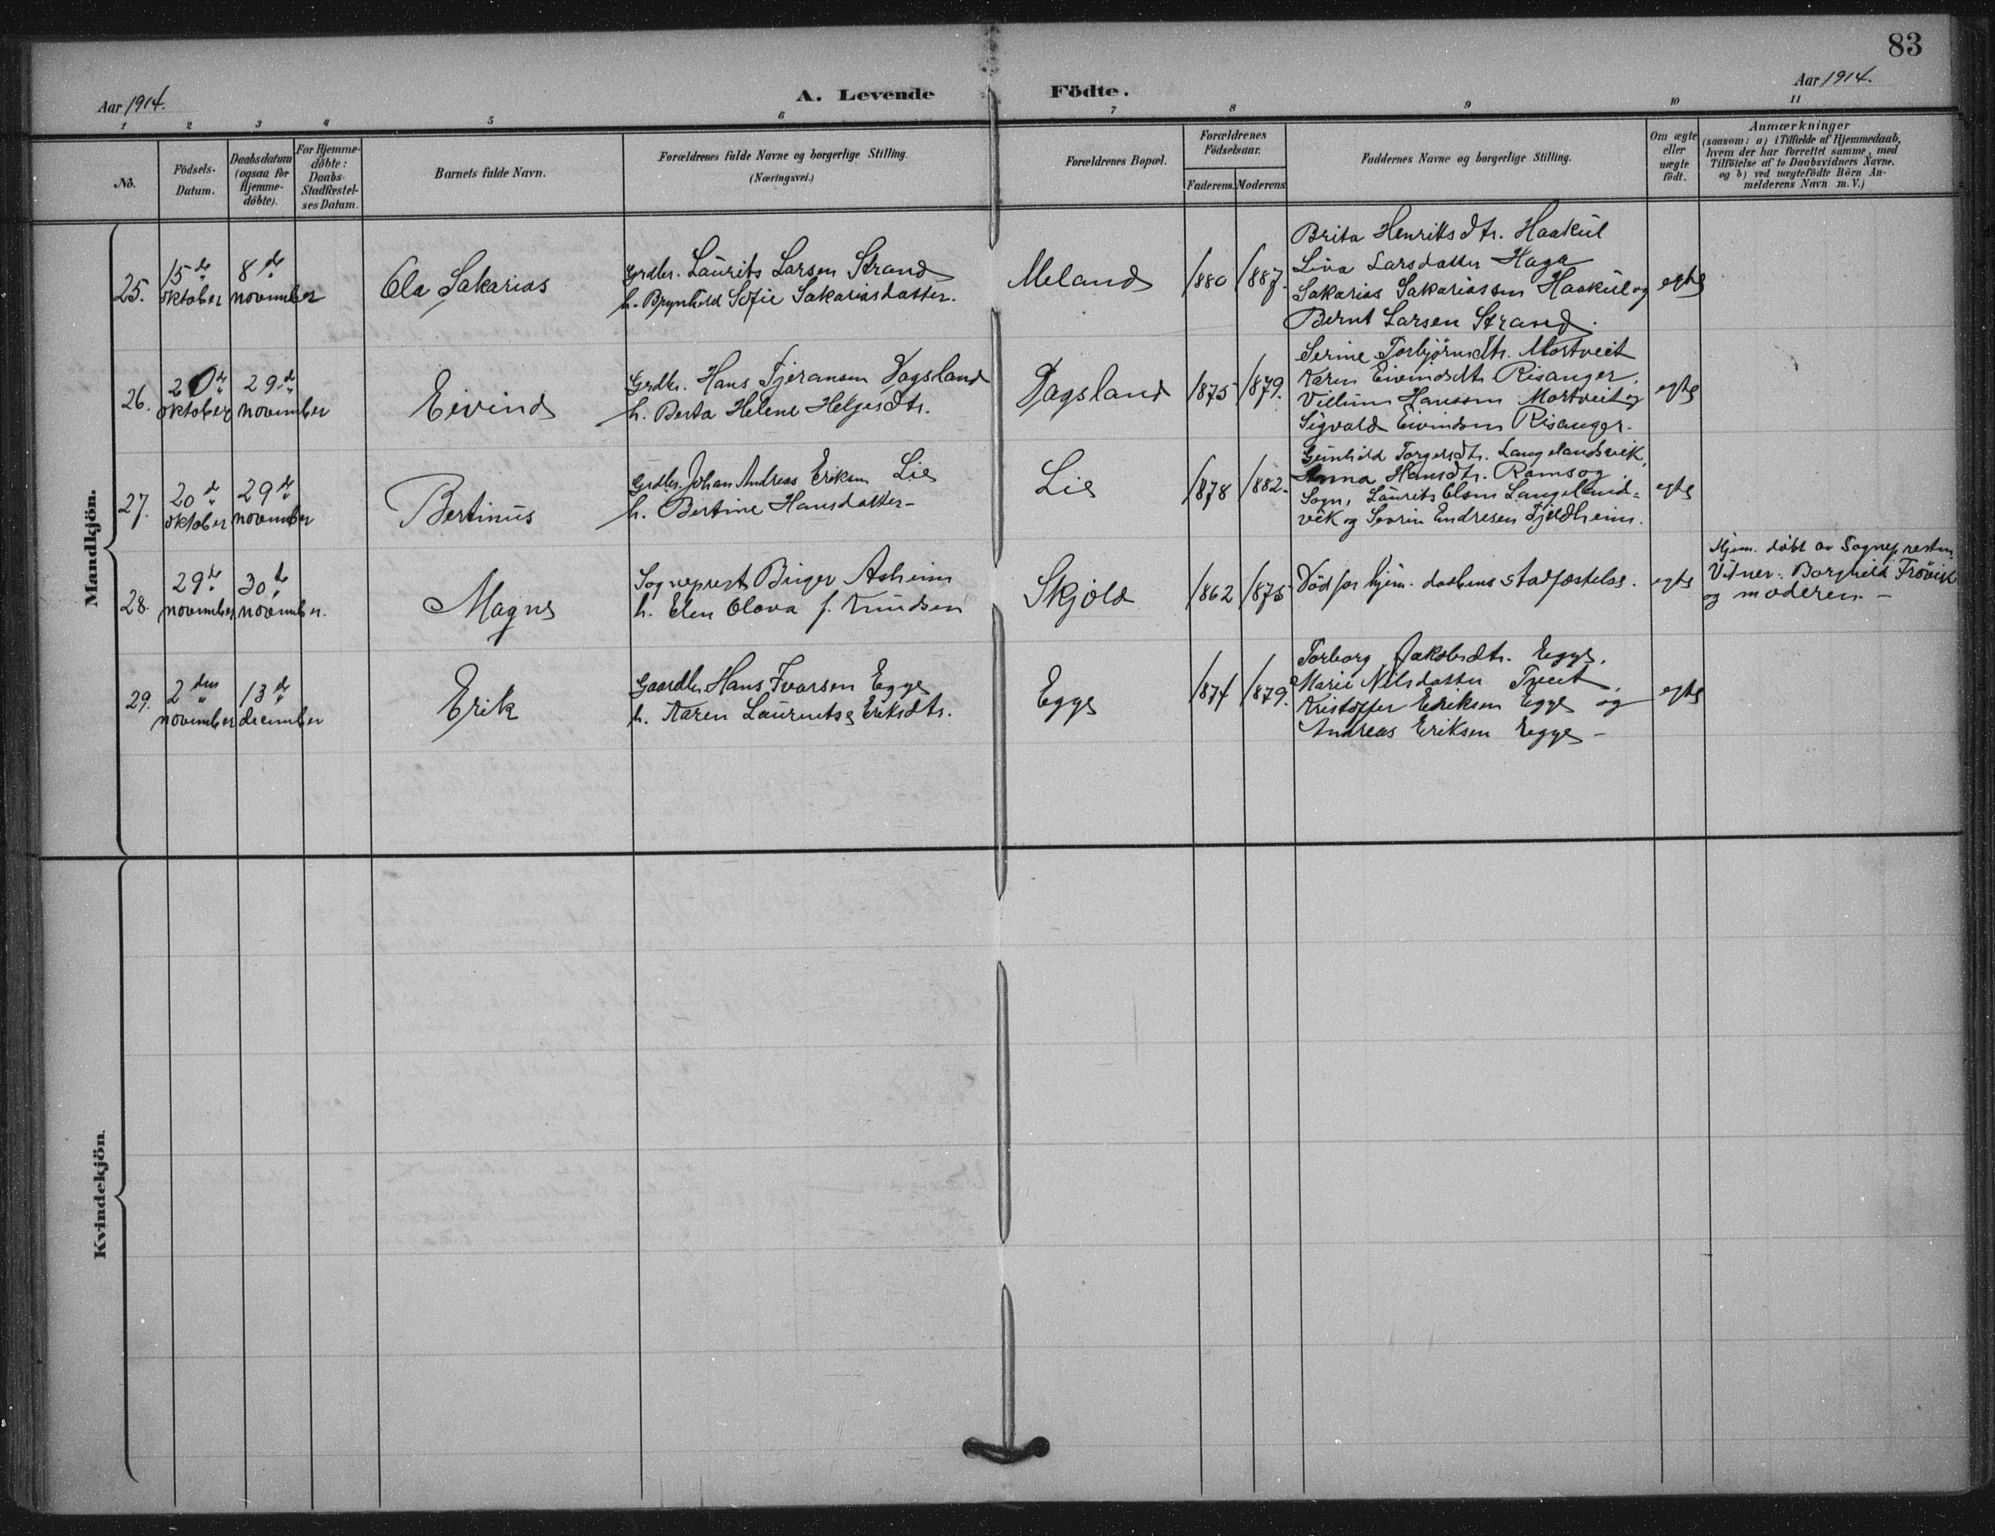 83
Aar 1914.
A. Levende
Födte.
Aar 1914.
1
2
3
4
5
6
7
8
9
10
11
No.
Födsels-
Datum.
Daabsdatum
(ogsaa for
Hjemme-
döbte).
For Hjemme-
döbte:
Daabs-
Stadfæstel-
ses Datum.
Barnets fulde Navn.
Forældrenes fulde Navne og borgerlige Stilling.
(Næringsvei.)
Forældrenes Bopæl.
Forældrenes
Födselsaar.
Faderens.
Moderens
Faddernes Navne og borgerlige Stilling.
Om ægte
eller
uægte
födt.
Anmærkninger
(saasom: a) i Tilfælde af Hjemmedaab,
hvem der har forrettet samme, med
Tilföielse af to Daabsvidners Navne.
og b) ved uægtefödte Börn An-
melderens Navn m. V.)
Mandkjön.
25.
15 de
oktober
8 de
november
Ola Sakarias
Grdbr. Laurits Larsen Strand
h. Brynhild Sofie Sakariasdatter.
Meland
1880
1887.
Brita Henriksdtr. Haakul
Lina Larsdatter Haga
Sakarias Sakariassen Haakul og
Bernt Larsen Strand.
egte
26.
20 de
oktober
29 de
november
Eivind
Grdbr. Hans Tjeransen Dagsland
h. Berta Helene Helgesdtr.
Dagsland
1875
1879.
Serine Torbjørnsdtr. Mortveit
Karen Eivindsdtr Risanger.
Villum Hanssen Mortveit og
Sigvald Eivindsen Risanger.
egte
27.
20 de
oktober
29 de
november
Bertinus
Grdbr. Johan Andreas Eriksen Lie
h. Bertine Hansdatter -
Lie
1878
1882.
Gunhild Torgersdtr. Langelandsvik,
Anna Hansdtr. Rams og
Sogn, Laurits Olsen Langeland=
vik og Severin Endresen Fjeldheim.
egte
28.
29 de
november
30 te
november.
Magne
Sogneprest Birger Asheim
h. Elen Olava f. Knudsen
Skjold
1862
1875
Död för hjem. daabens stadfæstelse.
egte
Hjem. døbt av Sognepresten
Vitner: Borghild Frøvik
og moderen -
29.
2 den
november
13 de
december
Erik
Gaardbr Hans Ivarsen Egge
h. Karen Laurentse Eriksdtr.
Egge
1874
1879.
Torborg Jakobsdtr. Egge,
Marie Nilsdatter Tveit,
Kristoffer Eriksen Egge og
Andreas Eriksen Egge -
egte
Kvindekjön.